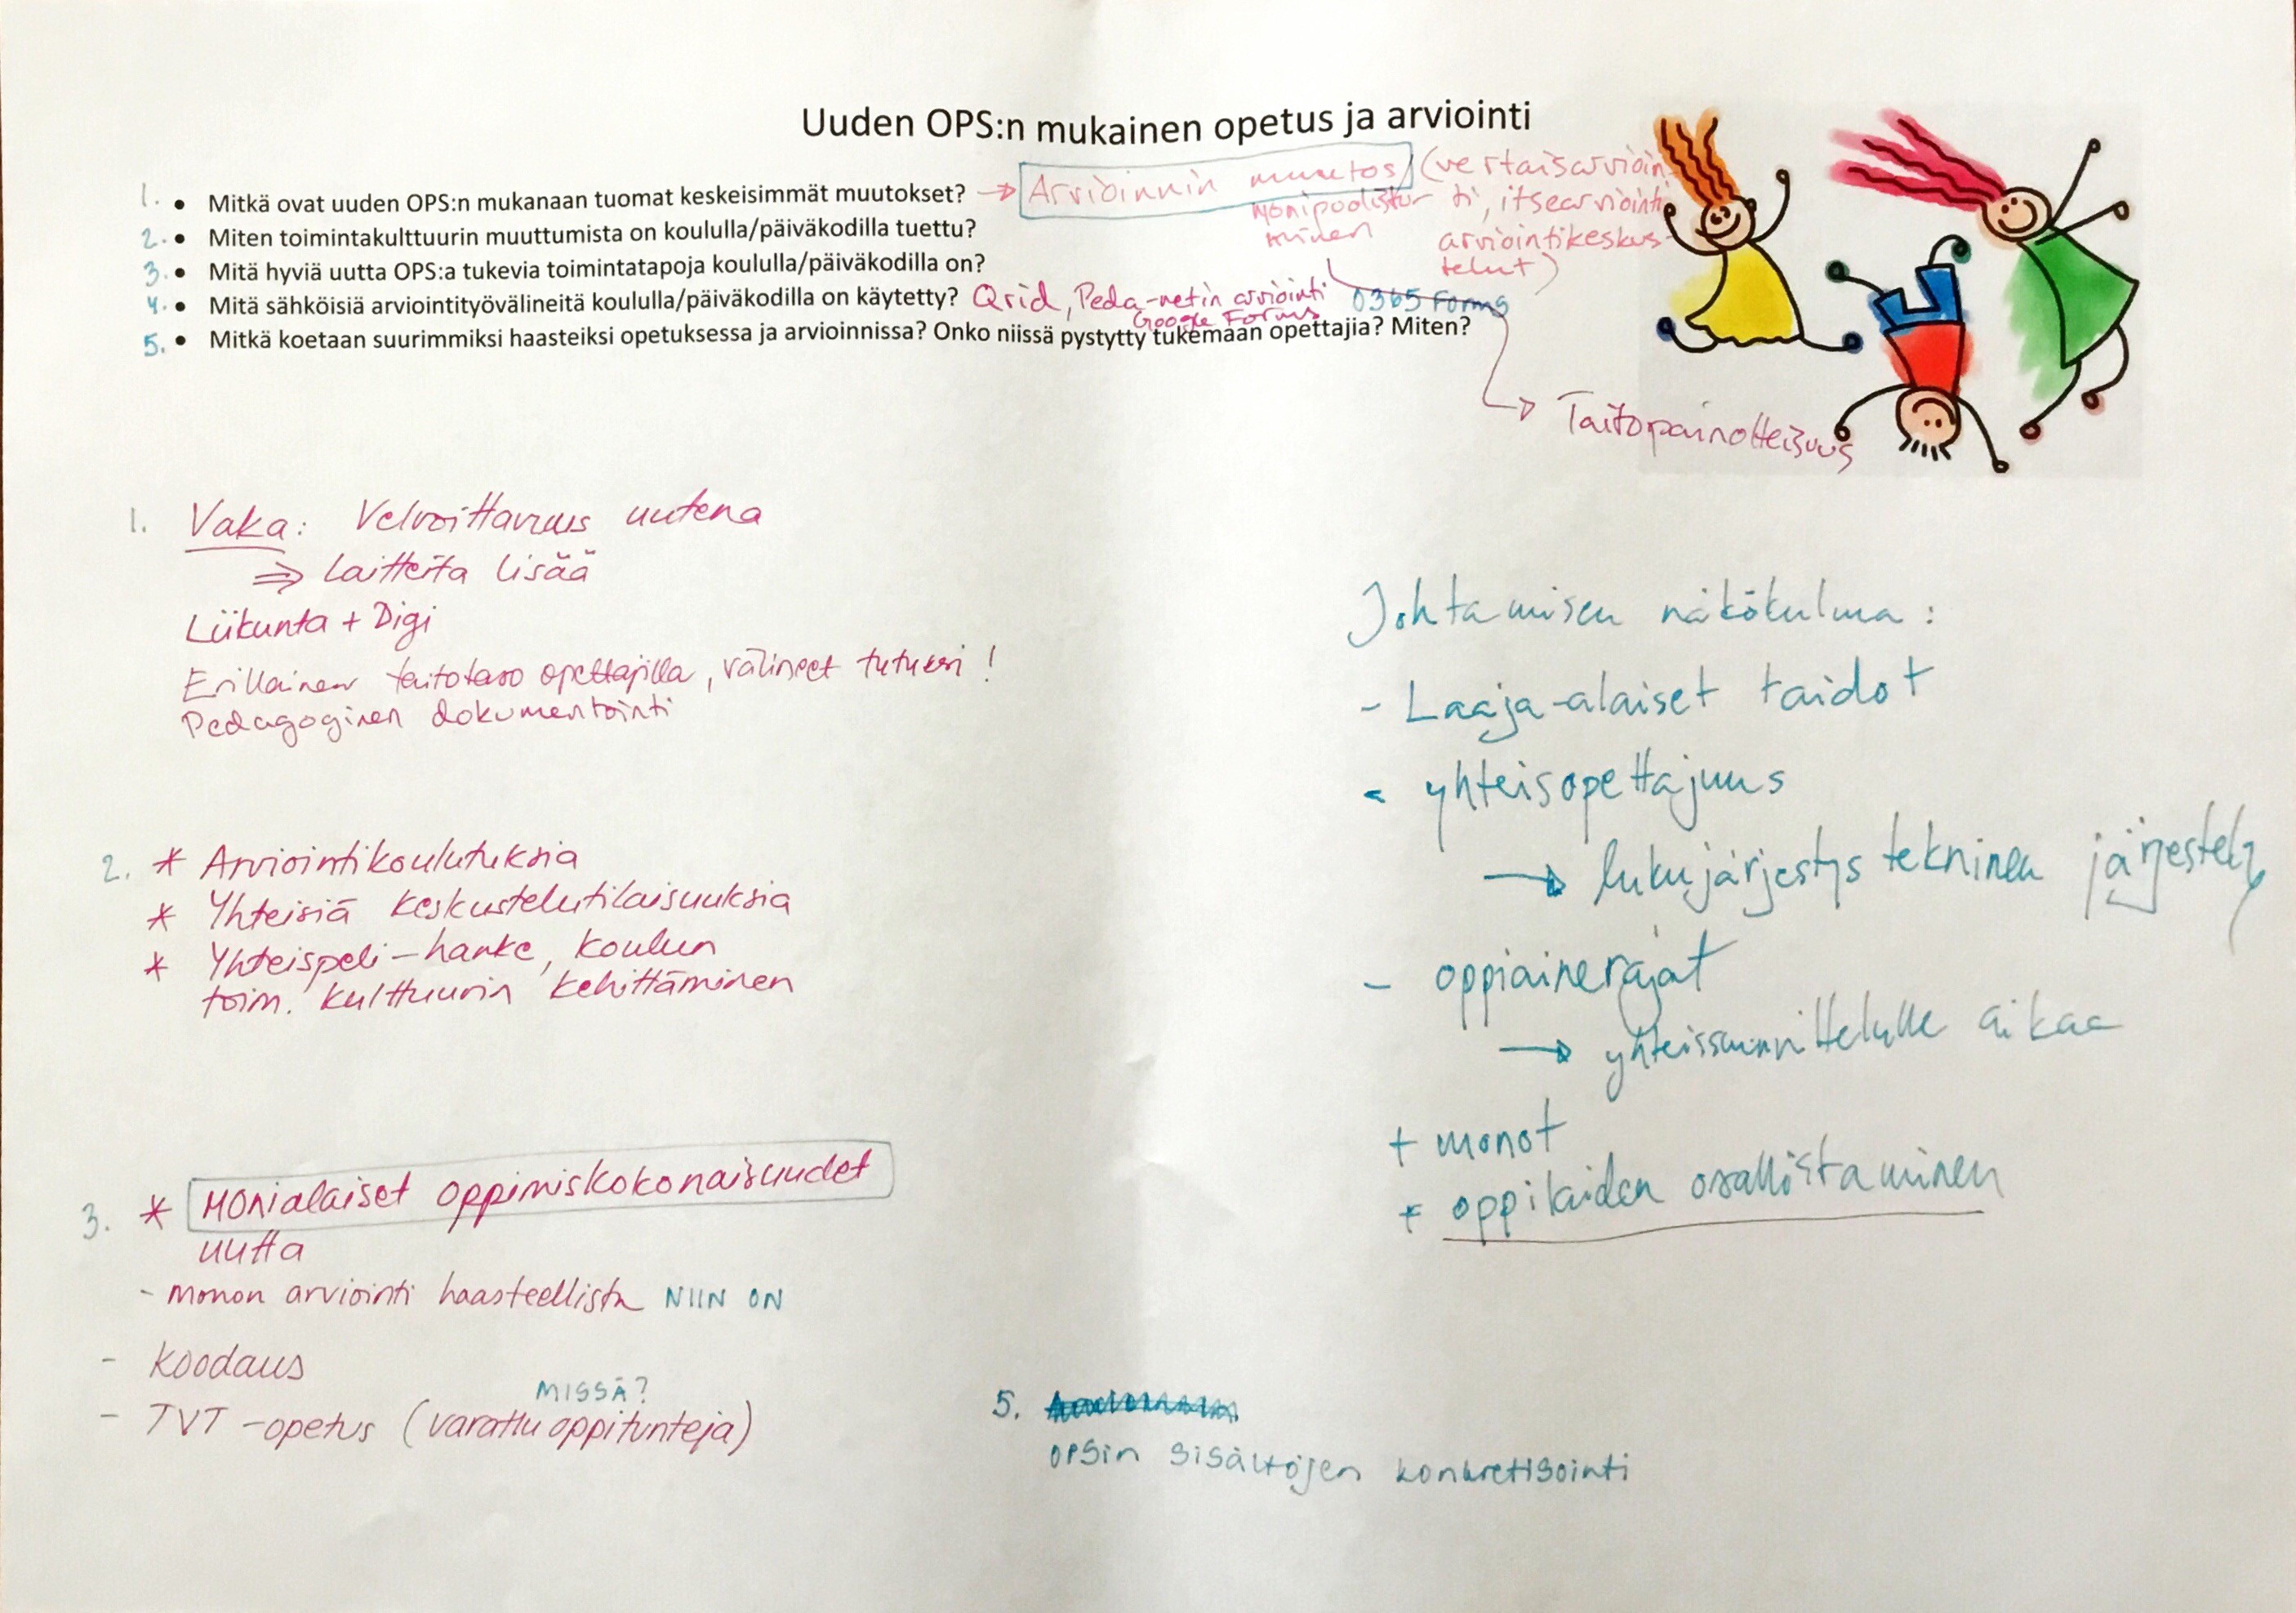 Uuden OPS:n mukainen opetus ja arviointi
1. • Mitkä ovat uuden OPS:n mukanaan tuomat keskeisimmät muutokset? → Arvioinnin muutos (vertaisarvioin-
monipuolistu- ti, itsearviointi
minen arviointikeskus-
telut)
2. • Miten toimintakulttuurin muuttumista on koululla/päiväkodilla tuettu?
3. • Mitä hyviä uutta OPS:a tukevia toimintatapoja koululla/päiväkodilla on?
4. • Mitä sähköisiä arviointityövälineitä koululla/päiväkodilla on käytetty? Qrid, Peda-netin arviointi O365 Forms
Google Forms
5. • Mitkä koetaan suurimmiksi haasteiksi opetuksessa ja arvioinnissa? Onko niissä pystytty tukemaan opettajia? Miten?
→ Taitopainotteisuus
1. Vaka: Velvoittavuus uutena
⇒ Laitteita lisää
Liikunta + Digi
Erillainen taitotaso opettajilla, välineet tutuksi!
Pedagoginen dokumentointi
2. * Arviointikoulutuksia
* Yhteisiä keskustelutilaisuuksia
* Yhteispeli-hanke, koulun
toim. kulttuurin kehittäminen
3. * Monialaiset oppimiskokonaisuudet
uutta
- Monon arviointi haasteellista NIIN ON
- Koodaus
MISSÄ?
- TVT-opetus (varattu oppitunteja)
Johtamisen näkökulma:
- Laaja-alaiset taidot
- yhteisopettajuus
→ lukujärjestys tekninen järjestely
- oppiainerajat
→ yhteissuunnittelulle aikaa
+ monot
+ oppilaiden osallistaminen
5.
OPSin sisältöjen konkretisointi